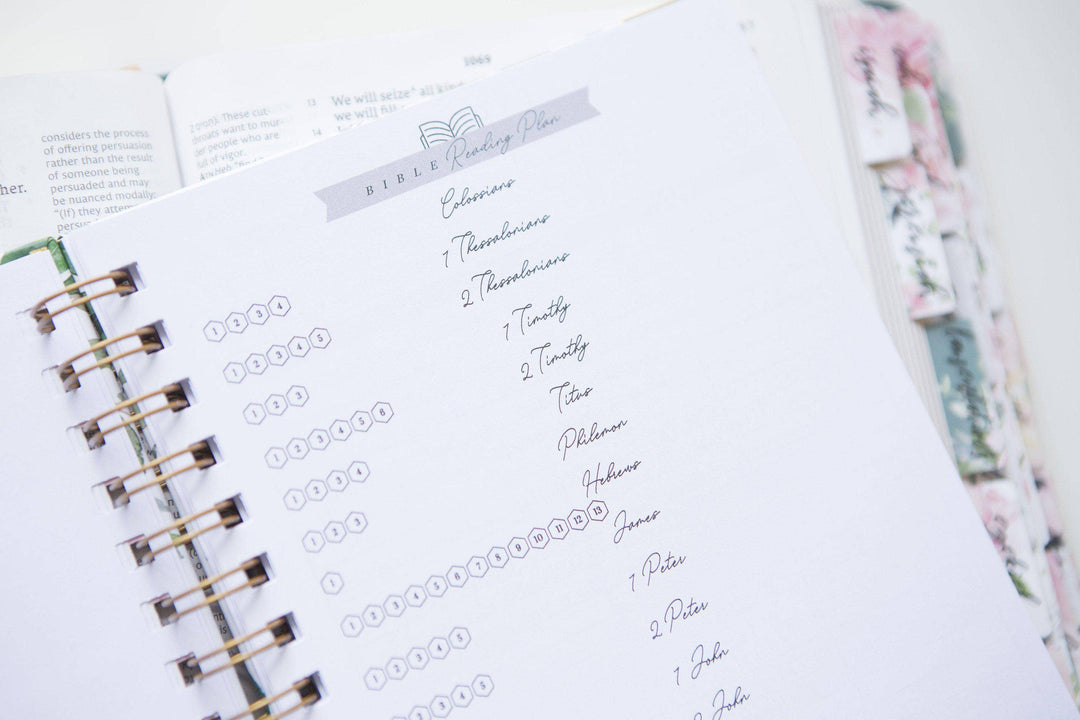 considers the process
of offering persuasion
rather than the result
of someone being
persuaded and may
be nuanced modally:
her.
1069
These cut-
throats want to mur-
der people who are
full of vigor.
13 We will seize^ all
we will
14
BIBLE Reading Plan
Colossians
1 2 3 4
1 Thessalonians
1 2 3 4 5
2 Thessalonians
1 2 3
1 Timothy
1 2 3 4 5 6
2 Timothy
1 2 3 4
Titus
1 2 3
Philemon
1
Hebrews
1 2 3 4 5 6 7 8 9 10 11 12 13
James
1 2 3 4 5
1 Peter
1 2 3 4 5
2 Peter
1 John
John